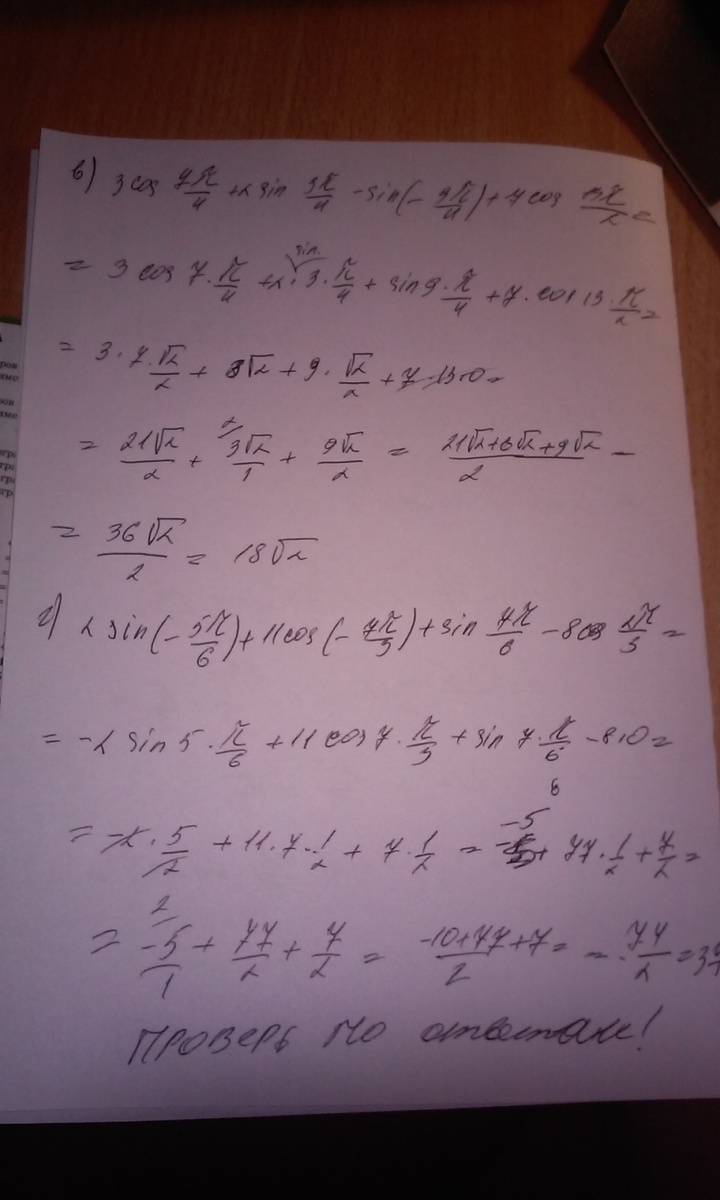 в) 3cos 7π/4 + 2 sin 3π/4 - sin(- 9π/4) + 7cos 13π/2 =
= 3 cos 7·π/4 + 2· sin 3·π/4 + sin 9·π/4 + 7·cos 13·π/2 =
= 3·7·√2/2 + 3√2 + 9·√2/2 + 7·13·0 =
= 21√2/2 + 3√2/1 + 9√2/2 = 21√2+6√2+9√2/2 =
= 36√2/2 = 18√2
г) 2 sin(- 5π/6) + 11cos(- 7π/3) + sin 7π/6 - 8cos π/3 =
= -2 sin 5·π/6 + 11 cos 7·π/3 + sin 7·π/6 - 8·0 =
= -2·5/2 + 11·7·1/2 + 7·1/2 = -5 + 77·1/2 + 7/2 =
= -5/1 + 77/2 + 7/2 = -10+77+7/2 = 74/2 = 37
Проверь по ответам!